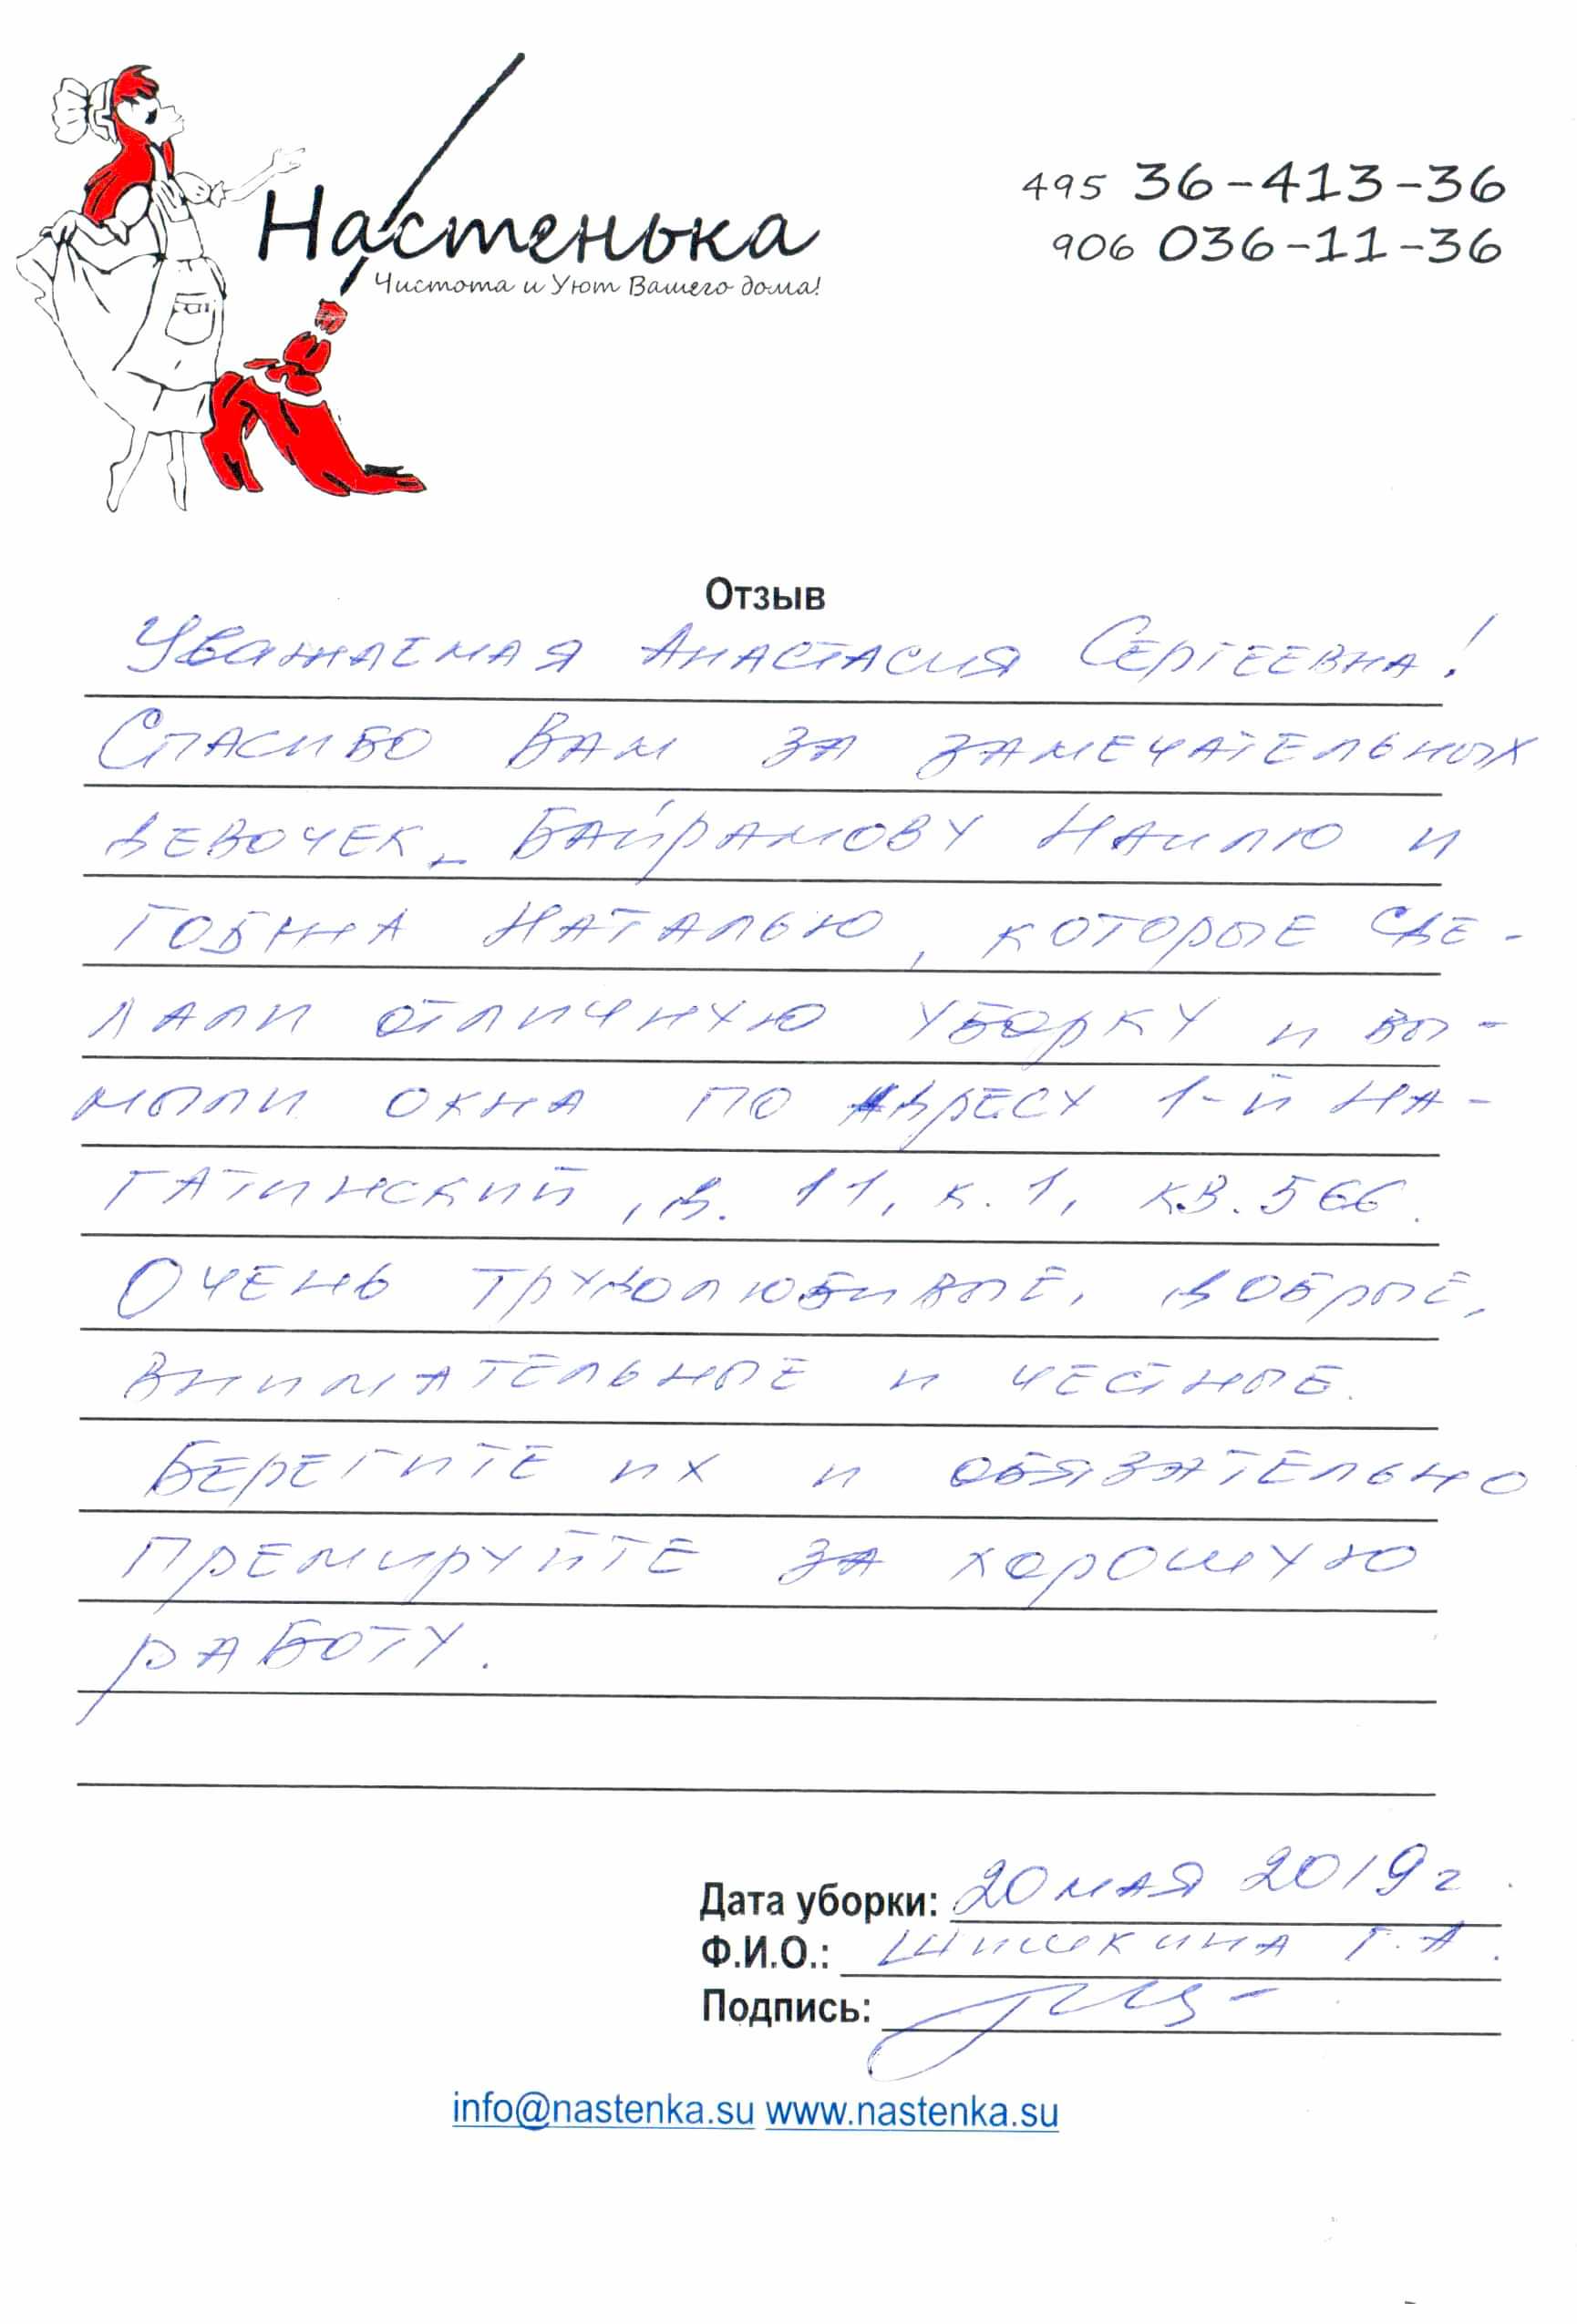 Настенька
Чистота и Уют Вашего дома!
495 36-413-36
906 036-11-36
Отзыв
Уважаемая Анастасия Сергеевна!
Спасибо Вам за замечательных
девочек – Байрамову Наилю и
Наталью, которые сде-
лали отличную уборку и вы-
мыли окна по адресу 1-й На-
гатинский, д. 11, к. 1, кв. 566.
Очень трудолюбивые, добрые,
внимательные и честные.
Берегите их и обязательно
премируйте за хорошую
работу.
Дата уборки: 20 мая 2019 г.
Ф.И.О.: Шишкина Г.А.
Подпись:
info@nastenka.su www.nastenka.su